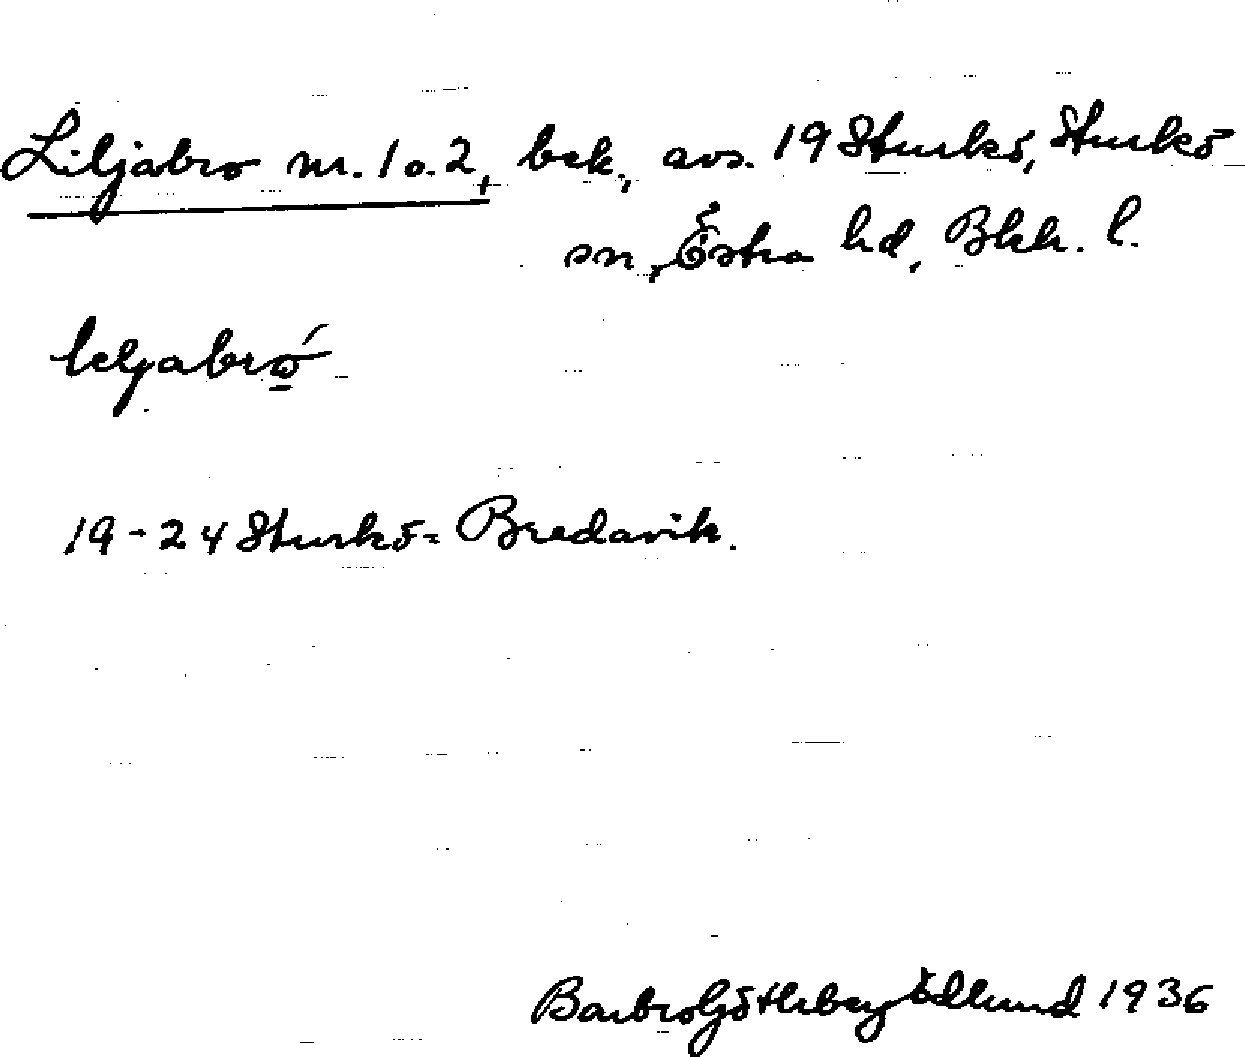 Liljabro nr. 1 o. 2, bek., avs. 19 Sturkö, Sturkö
sn, Östra hd, Blek. l.
leljabró
19-24 Sturkö = Bredavik.
Barbro Götherberg Edlund 1936